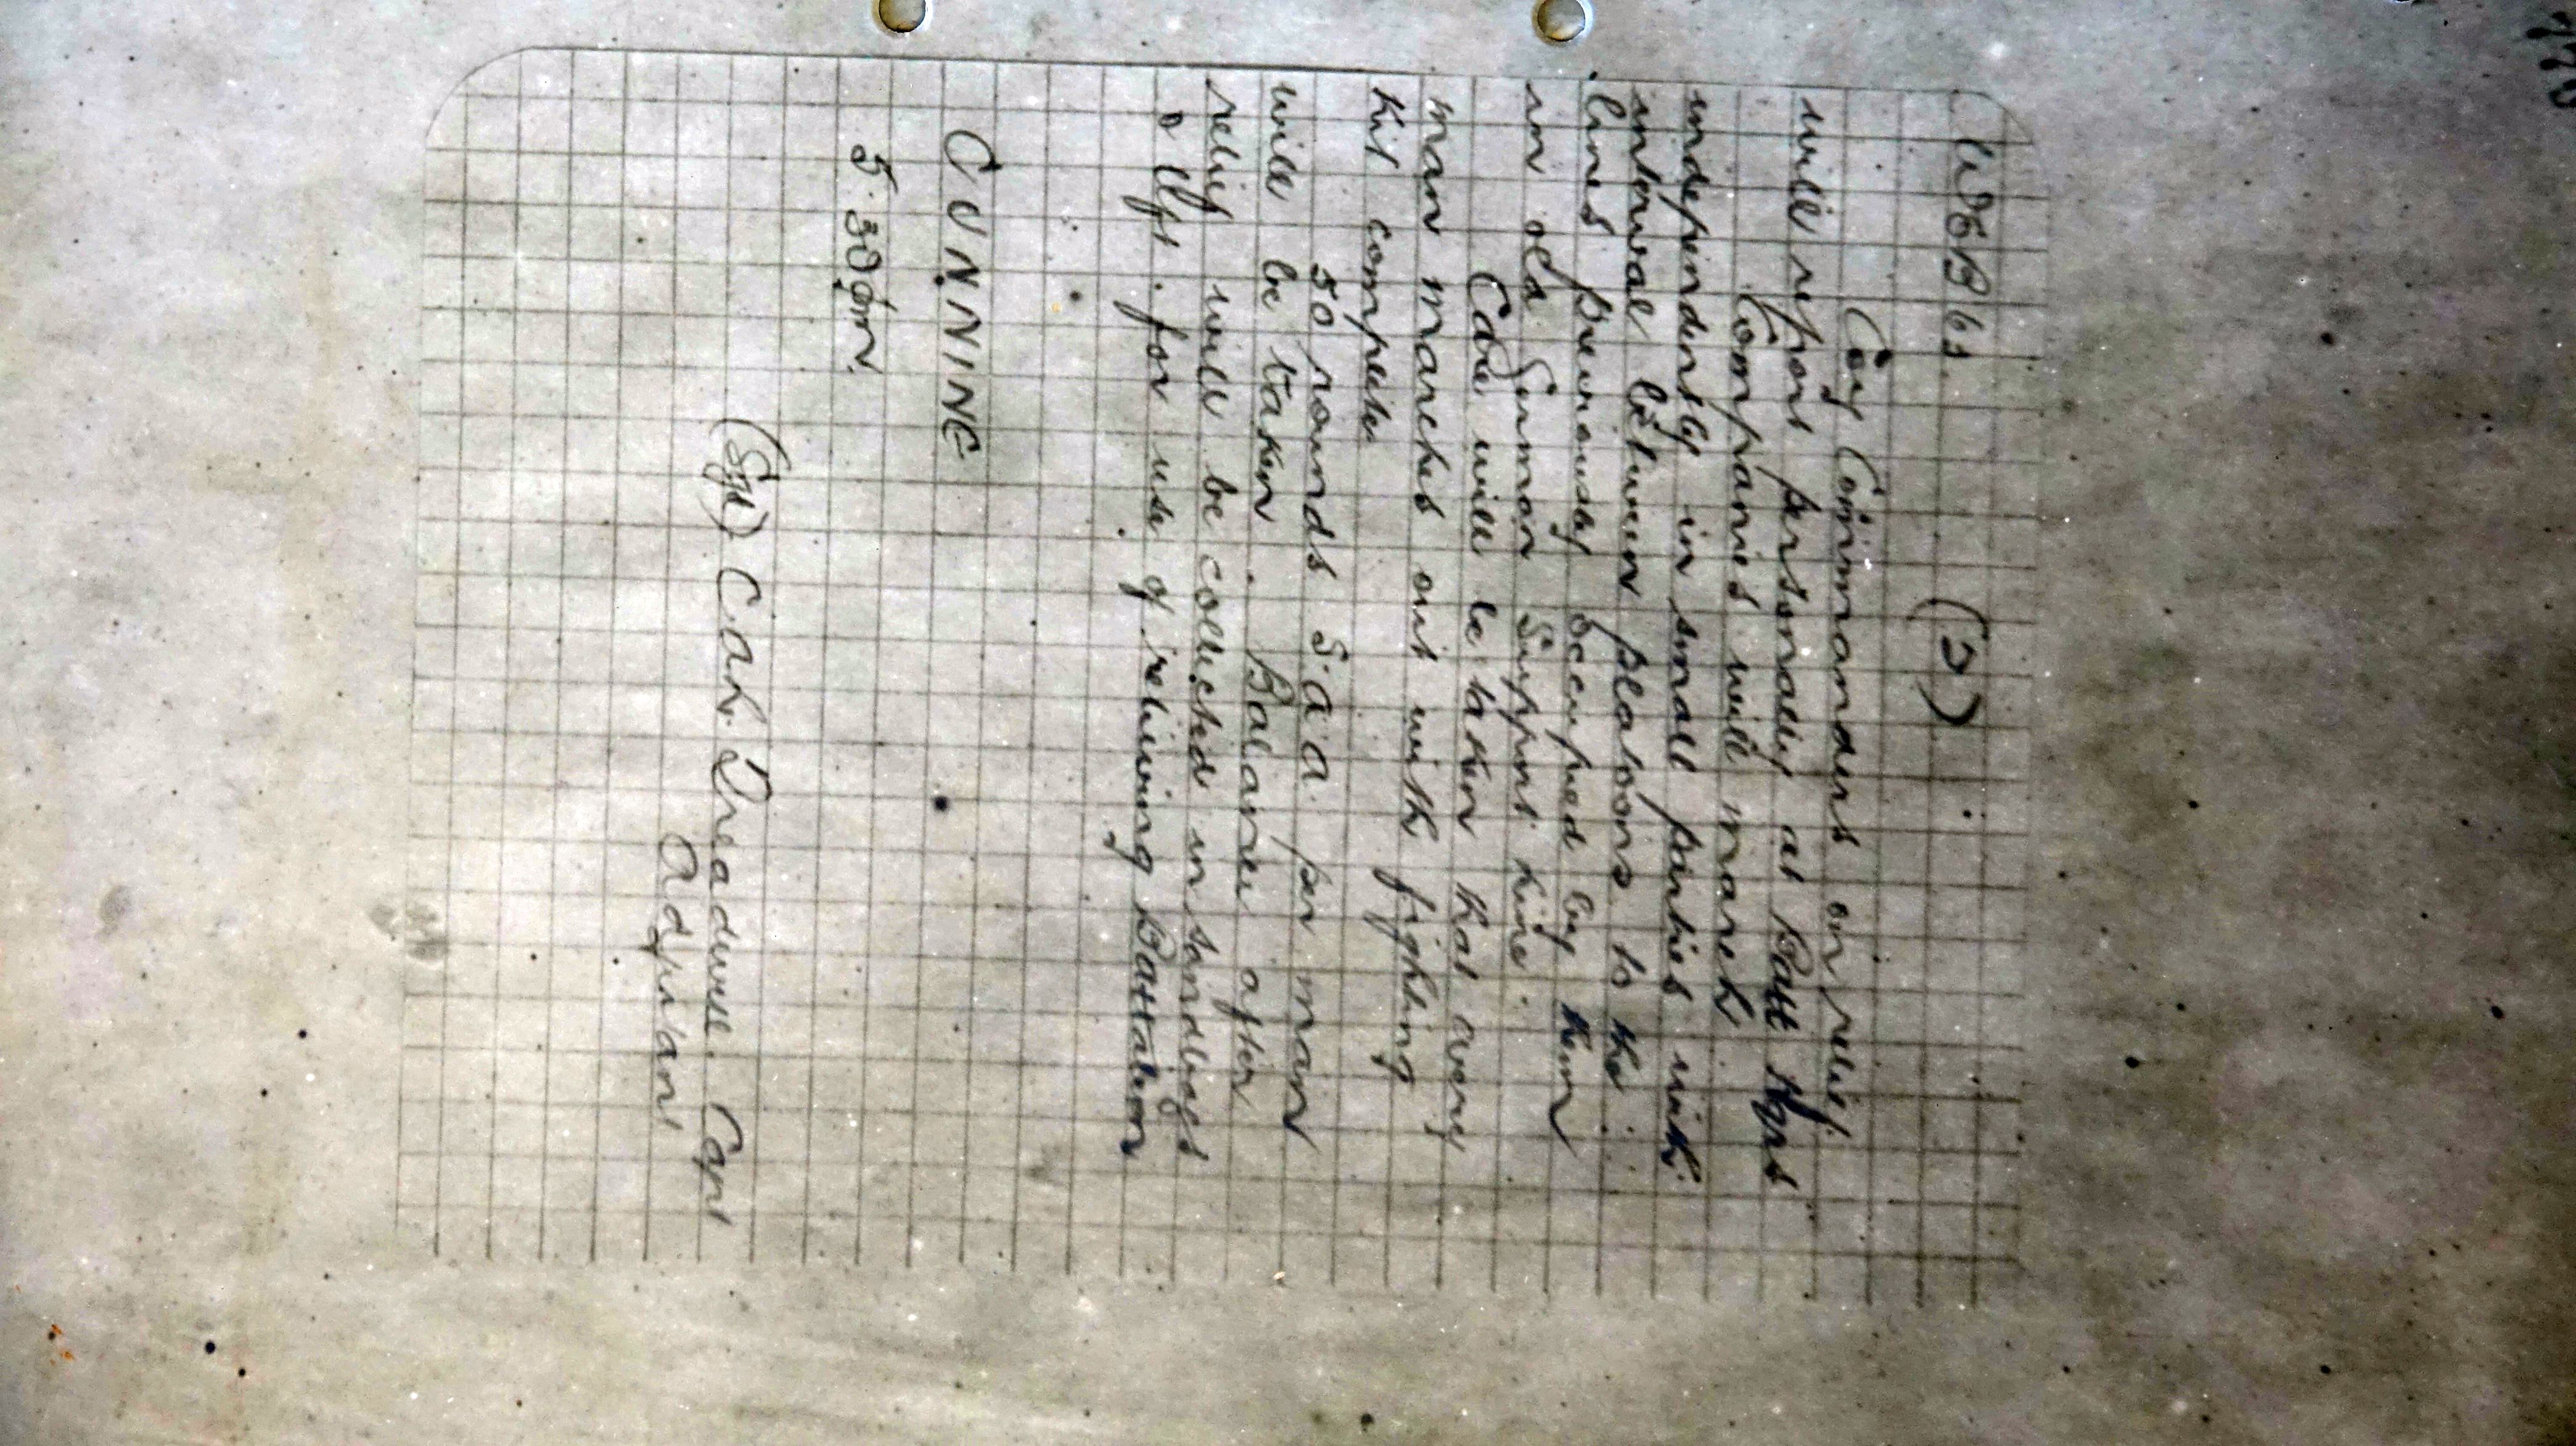 (2)
Coy Commanders on relief
will report personally at Batt Hqrs
Companies will march
independently in small parties with
interval between platoons to the
lines previously occupied by them
in old German Support Line.
Care will be taken that every
man marches out with fighting
kit complete
50 rounds S.A.A. per man
will be taken. Balance after
relief will be collected in sandbags
& left for use of relieving Battalion
CUNNINE
5.30pm.
(Sgd) C.A.H. Capt
Adjutant